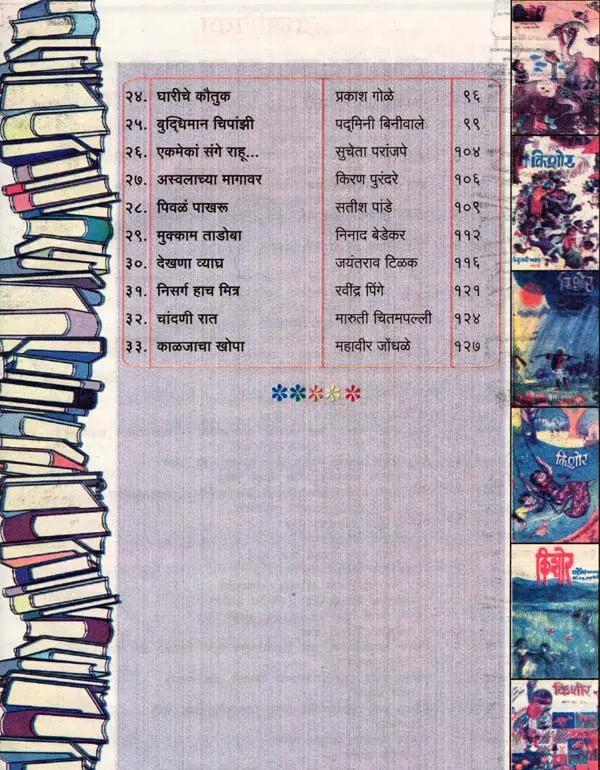 २४. घारीचे कौतुक प्रकाश गोळे ९६
२५. बुद्धिमान चिपांझी पद्मिनी बिनीवाले ९९
२६. एकमेकां संगे राहू... सुचेता परांजपे १०४
२७. अस्वलाच्या मागावर किरण पुरंदरे १०६
२८. पिवळं पाखरू सतीश पांडे १०९
२९. मुक्काम ताडोबा निनाद बेडेकर ११२
३०. देखणा व्याघ्र जयंतराव टिळक ११६
३१. निसर्ग हाच मित्र रवींद्र पिंगे १२१
३२. चांदणी रात मारुती चितमपल्ली १२४
३३. काळजाचा खोपा महावीर जोंधळे १२७
किशोर
किशोर
किशोर
किशोर
किशोर